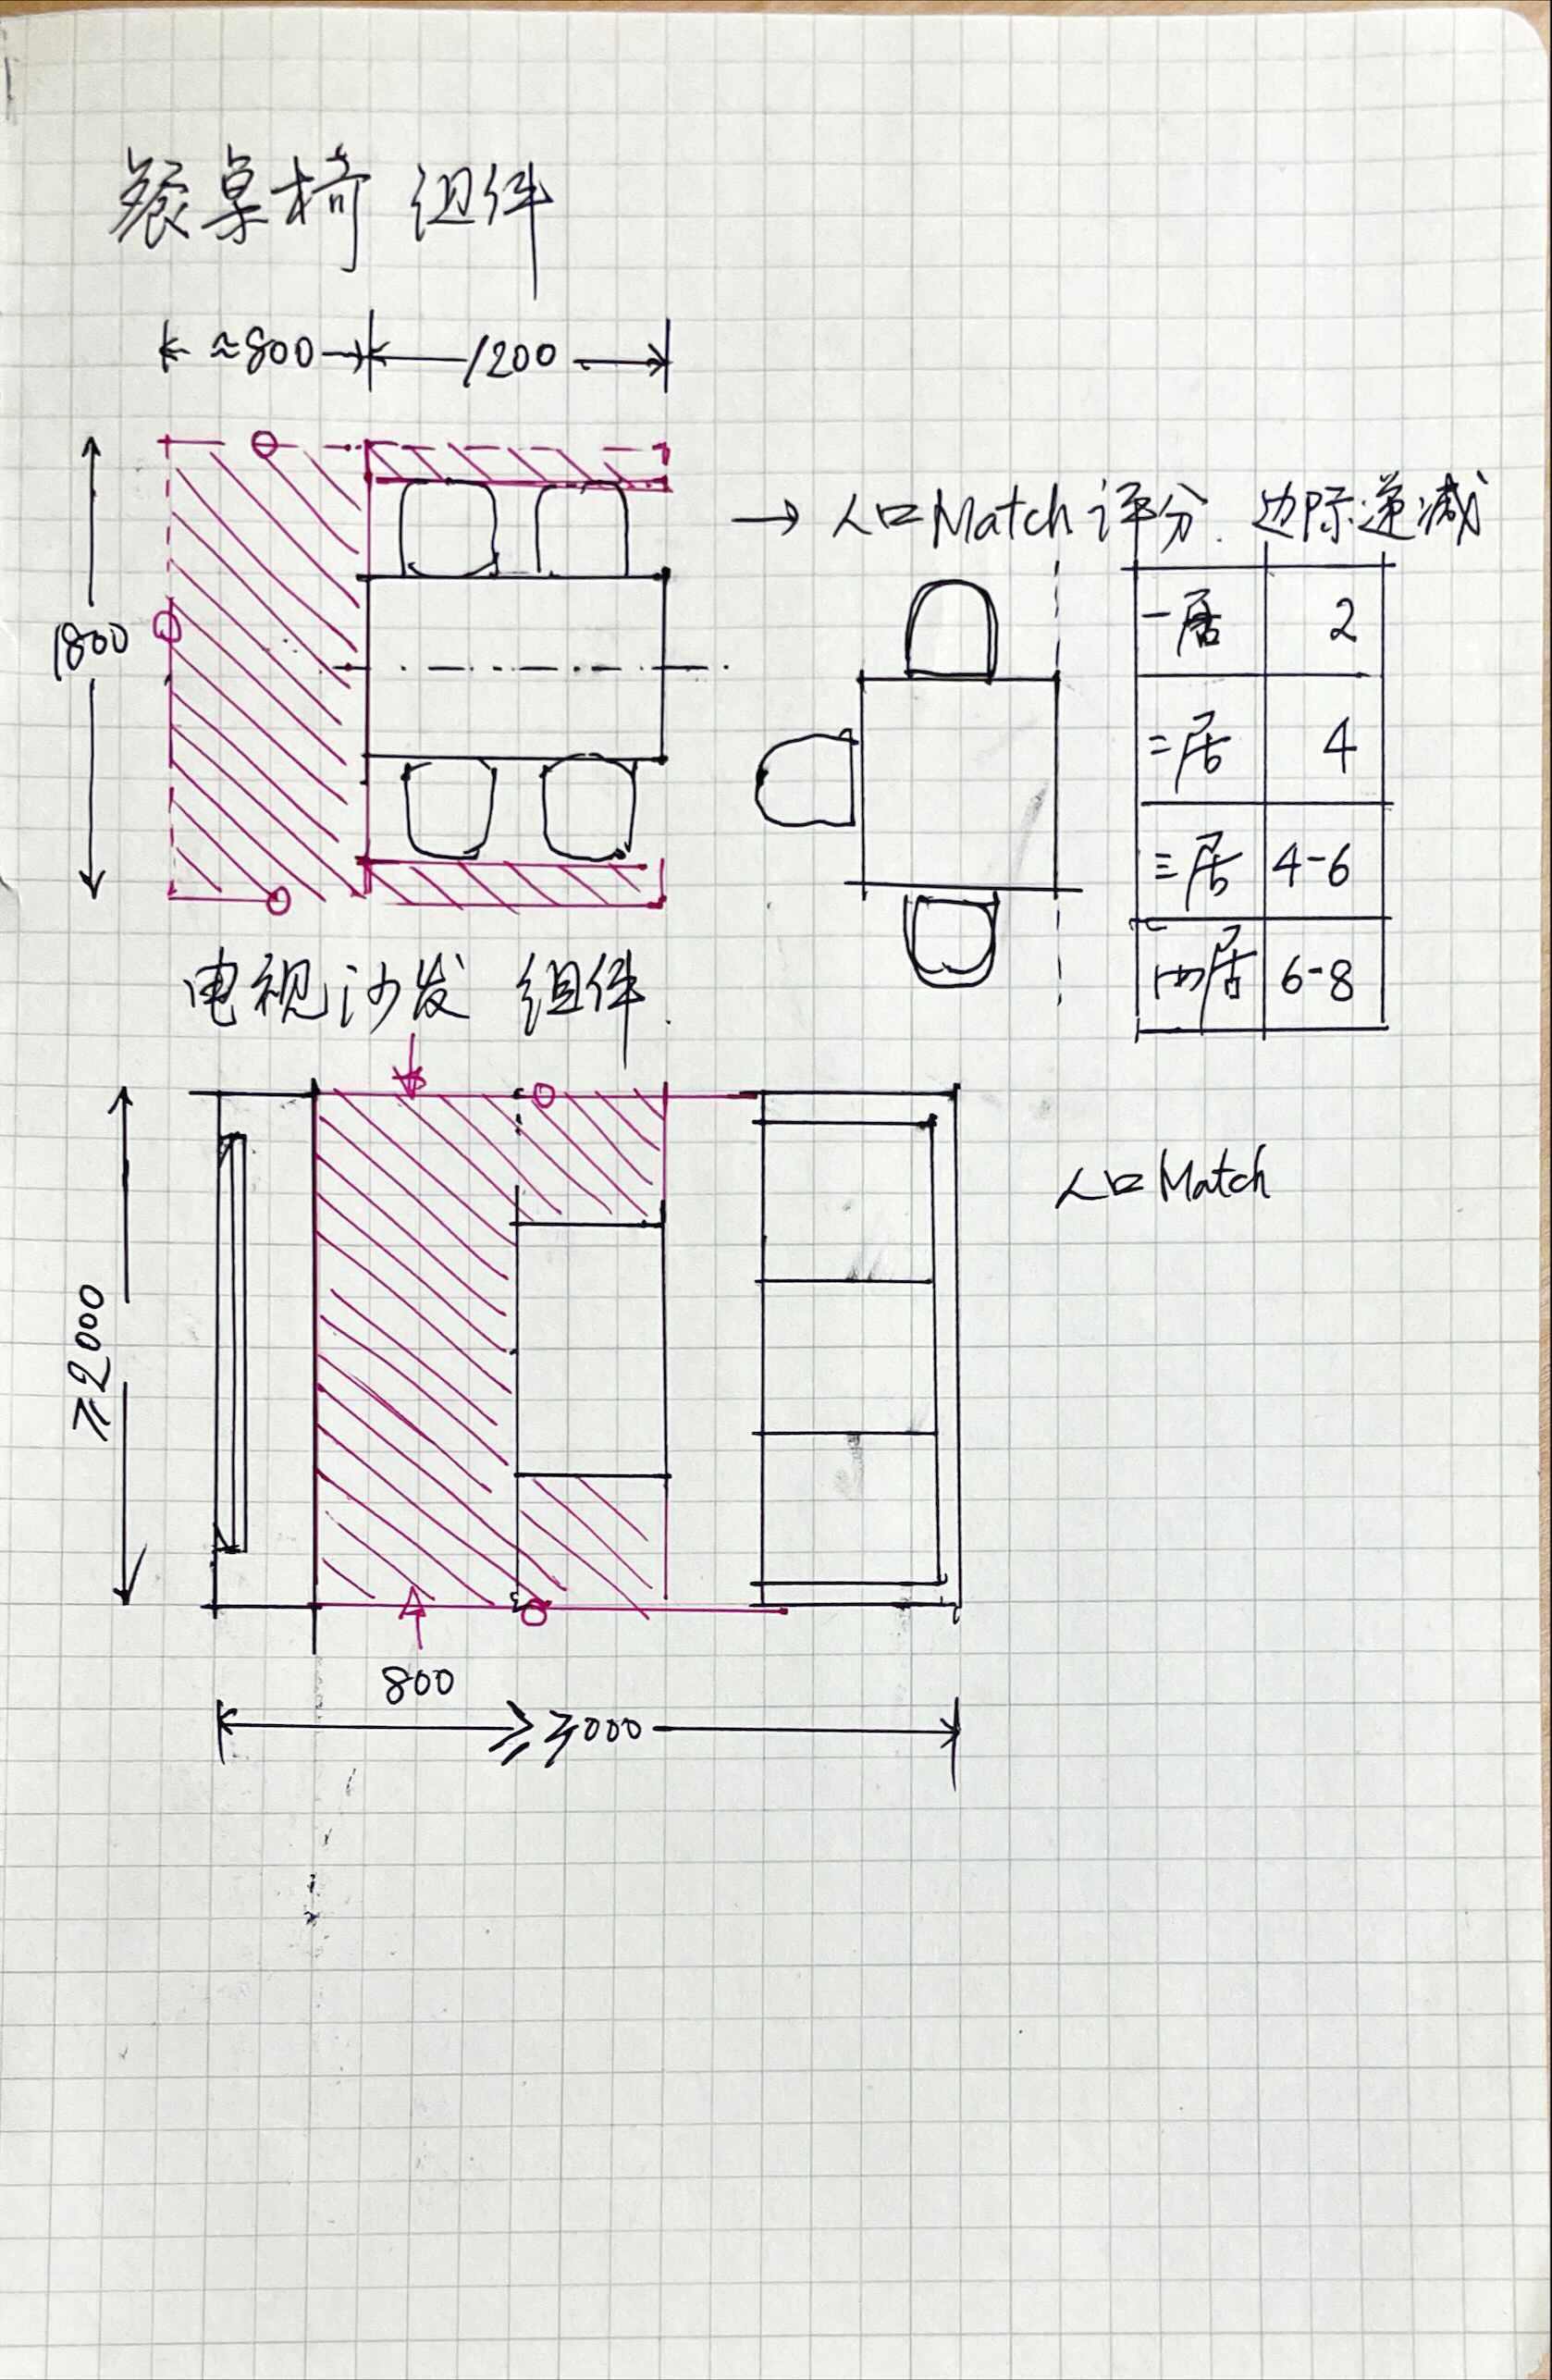 餐桌椅 组件
≈800 1200
1800
→ 人口Match评分. 边际递减
一居 2
二居 4
三居 4-6
四居 6-8
电视沙发 组件.
人口Match
≥2000
800
≥3000